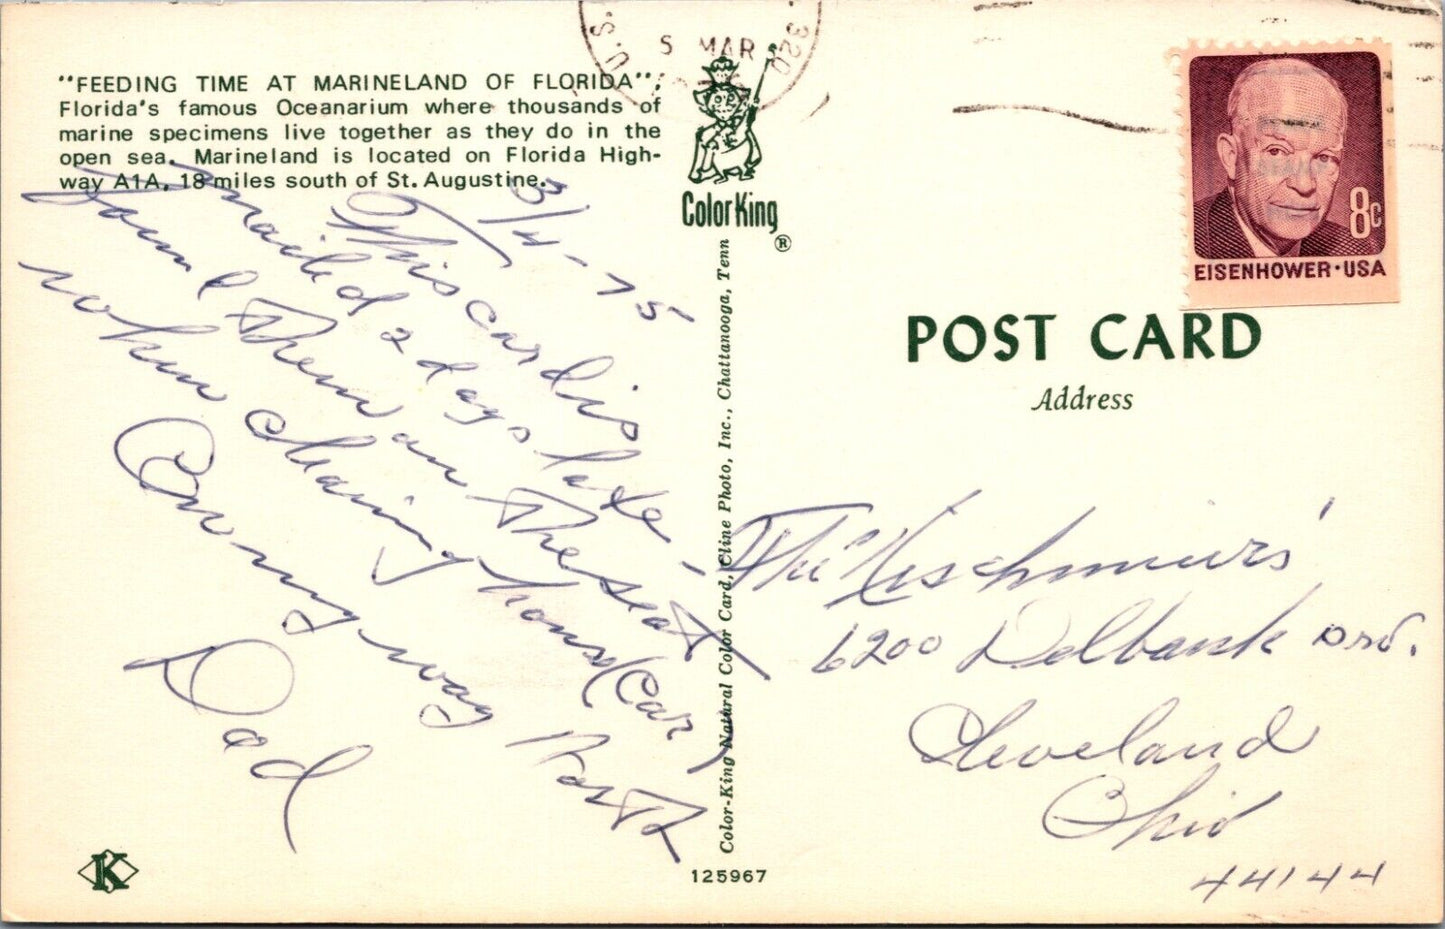 "FEEDING TIME AT MARINELAND OF FLORIDA";
Florida's famous Oceanarium where thousands of
marine specimens live together as they do in the
open sea. Marineland is located on Florida High-
way A1A, 18 miles south of St. Augustine.
3/4-75
This card is
mailed 2 days late -
Found them on the seat
when cleaning house (car)
On my way Back
Dad
K
Color King
®
Color-King Natural Color Card, Cline Photo, Inc., Chattanooga, Tenn
125967
U.S.
5 MAR
320
8c
EISENHOWER·USA
POST CARD
Address
The
6200 Delbank Drv.
Cleveland
Ohio
44144